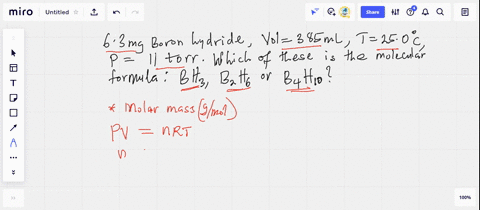 miro Untitled Share
6.3mg Boron hydride, Vol = 385mL, T = 25.0°C,
P = 11 torr. Which of these is the molecular
formula: BH3, B2H6 or B4H10?
* Molar mass (g/mol)
PV = nRT
n
100%